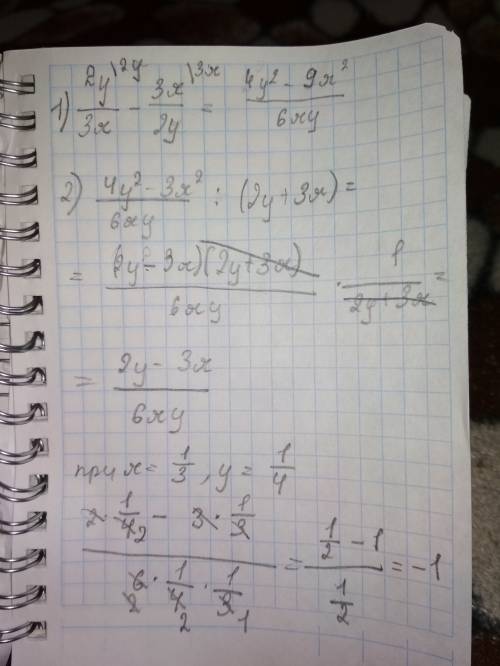 1) 2y\2y/3x - 3x\3x/2y = 4y² - 9x²/6xy
2) 4y² - 3x²/6xy : (2y + 3x) =
= (2y - 3x)(2y + 3x)/6xy · 1/2y + 3x =
= 2y - 3x/6xy
при x = 1/3, y = 1/4
2 · 1/4 2 - 3 · 1/3 / 6 2 · 1/4 2 · 1/3 1 = 1/2 - 1 / 1/2 = -1